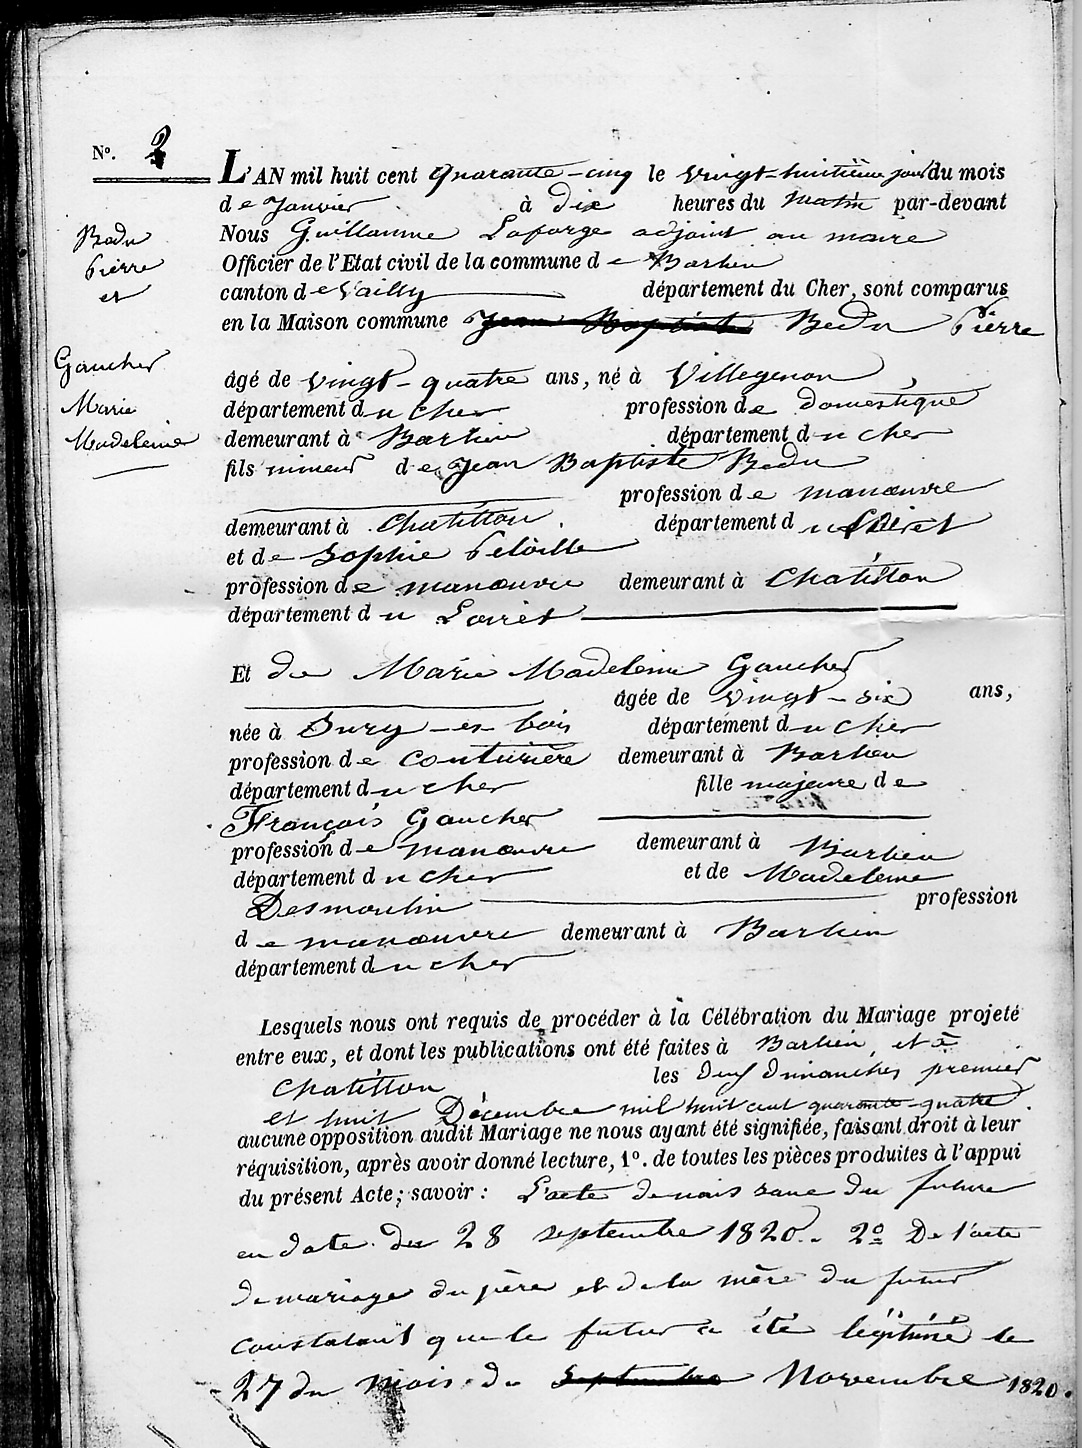 N°. 2
Bedu
Pierre
et
Gaucher
Marie
Madeleine
L'AN mil huit cent quarante-cinq le vingt-huitième jour du mois
de Janvier à dix heures du matin par-devant
Nous Guillaume Laforge adjoint au maire
Officier de l'Etat civil de la commune de Barlieu
canton de Vailly département du Cher, sont comparus
en la Maison commune Jean Baptiste Bedu Pierre
âgé de vingt-quatre ans, né à Villegenon,
département du cher profession de domestique
demeurant à Barlieu département du cher
fils mineur de Jean Baptiste Bedu
profession de manœuvre
demeurant à Chatillon département du Loiret
et de Sophie Peloille
profession de manœuvre demeurant à Chatillon
département du Loiret
Et de Marie Madeleine Gaucher
âgée de vingt-six ans,
née à Sury-es-bois département du cher
profession de couturière demeurant à Barlieu
département du cher fille majeure de
François Gaucher
profession de manœuvre demeurant à Barlieu
département du cher et de Madeleine
Desmoulin profession
de manœuvre demeurant à Barlieu
département du cher
Lesquels nous ont requis de procéder à la Célébration du Mariage projeté
entre eux, et dont les publications ont été faites à Barlieu, et à
Chatillon les deux dimanches premier
et huit Décembre mil huit cent quarante-quatre.
aucune opposition audit Mariage ne nous ayant été signifiée, faisant droit à leur
réquisition, après avoir donné lecture, 1°. de toutes les pièces produites à l'appui
du présent Acte; savoir: L'acte de naissance du future
en date du 28 septembre 1820. 2° De l'acte
de mariage du père et de la mère du futur
constatant que le futur a été légitimé le
27 du mois de Septembre Novembre 1820.